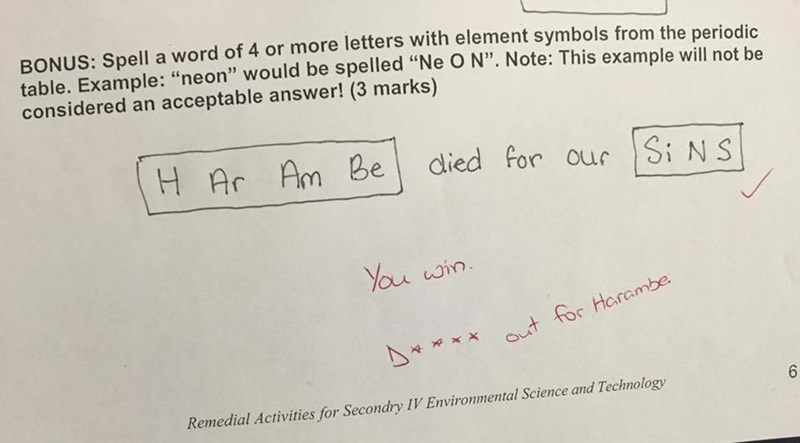 BONUS: Spell a word of 4 or more letters with element symbols from the periodic
table. Example: “neon” would be spelled “Ne O N”. Note: This example will not be
considered an acceptable answer! (3 marks)
H Ar Am Be died for our Si N S
You win.
D**** out for Harambe.
6
Remedial Activities for Secondry IV Environmental Science and Technology